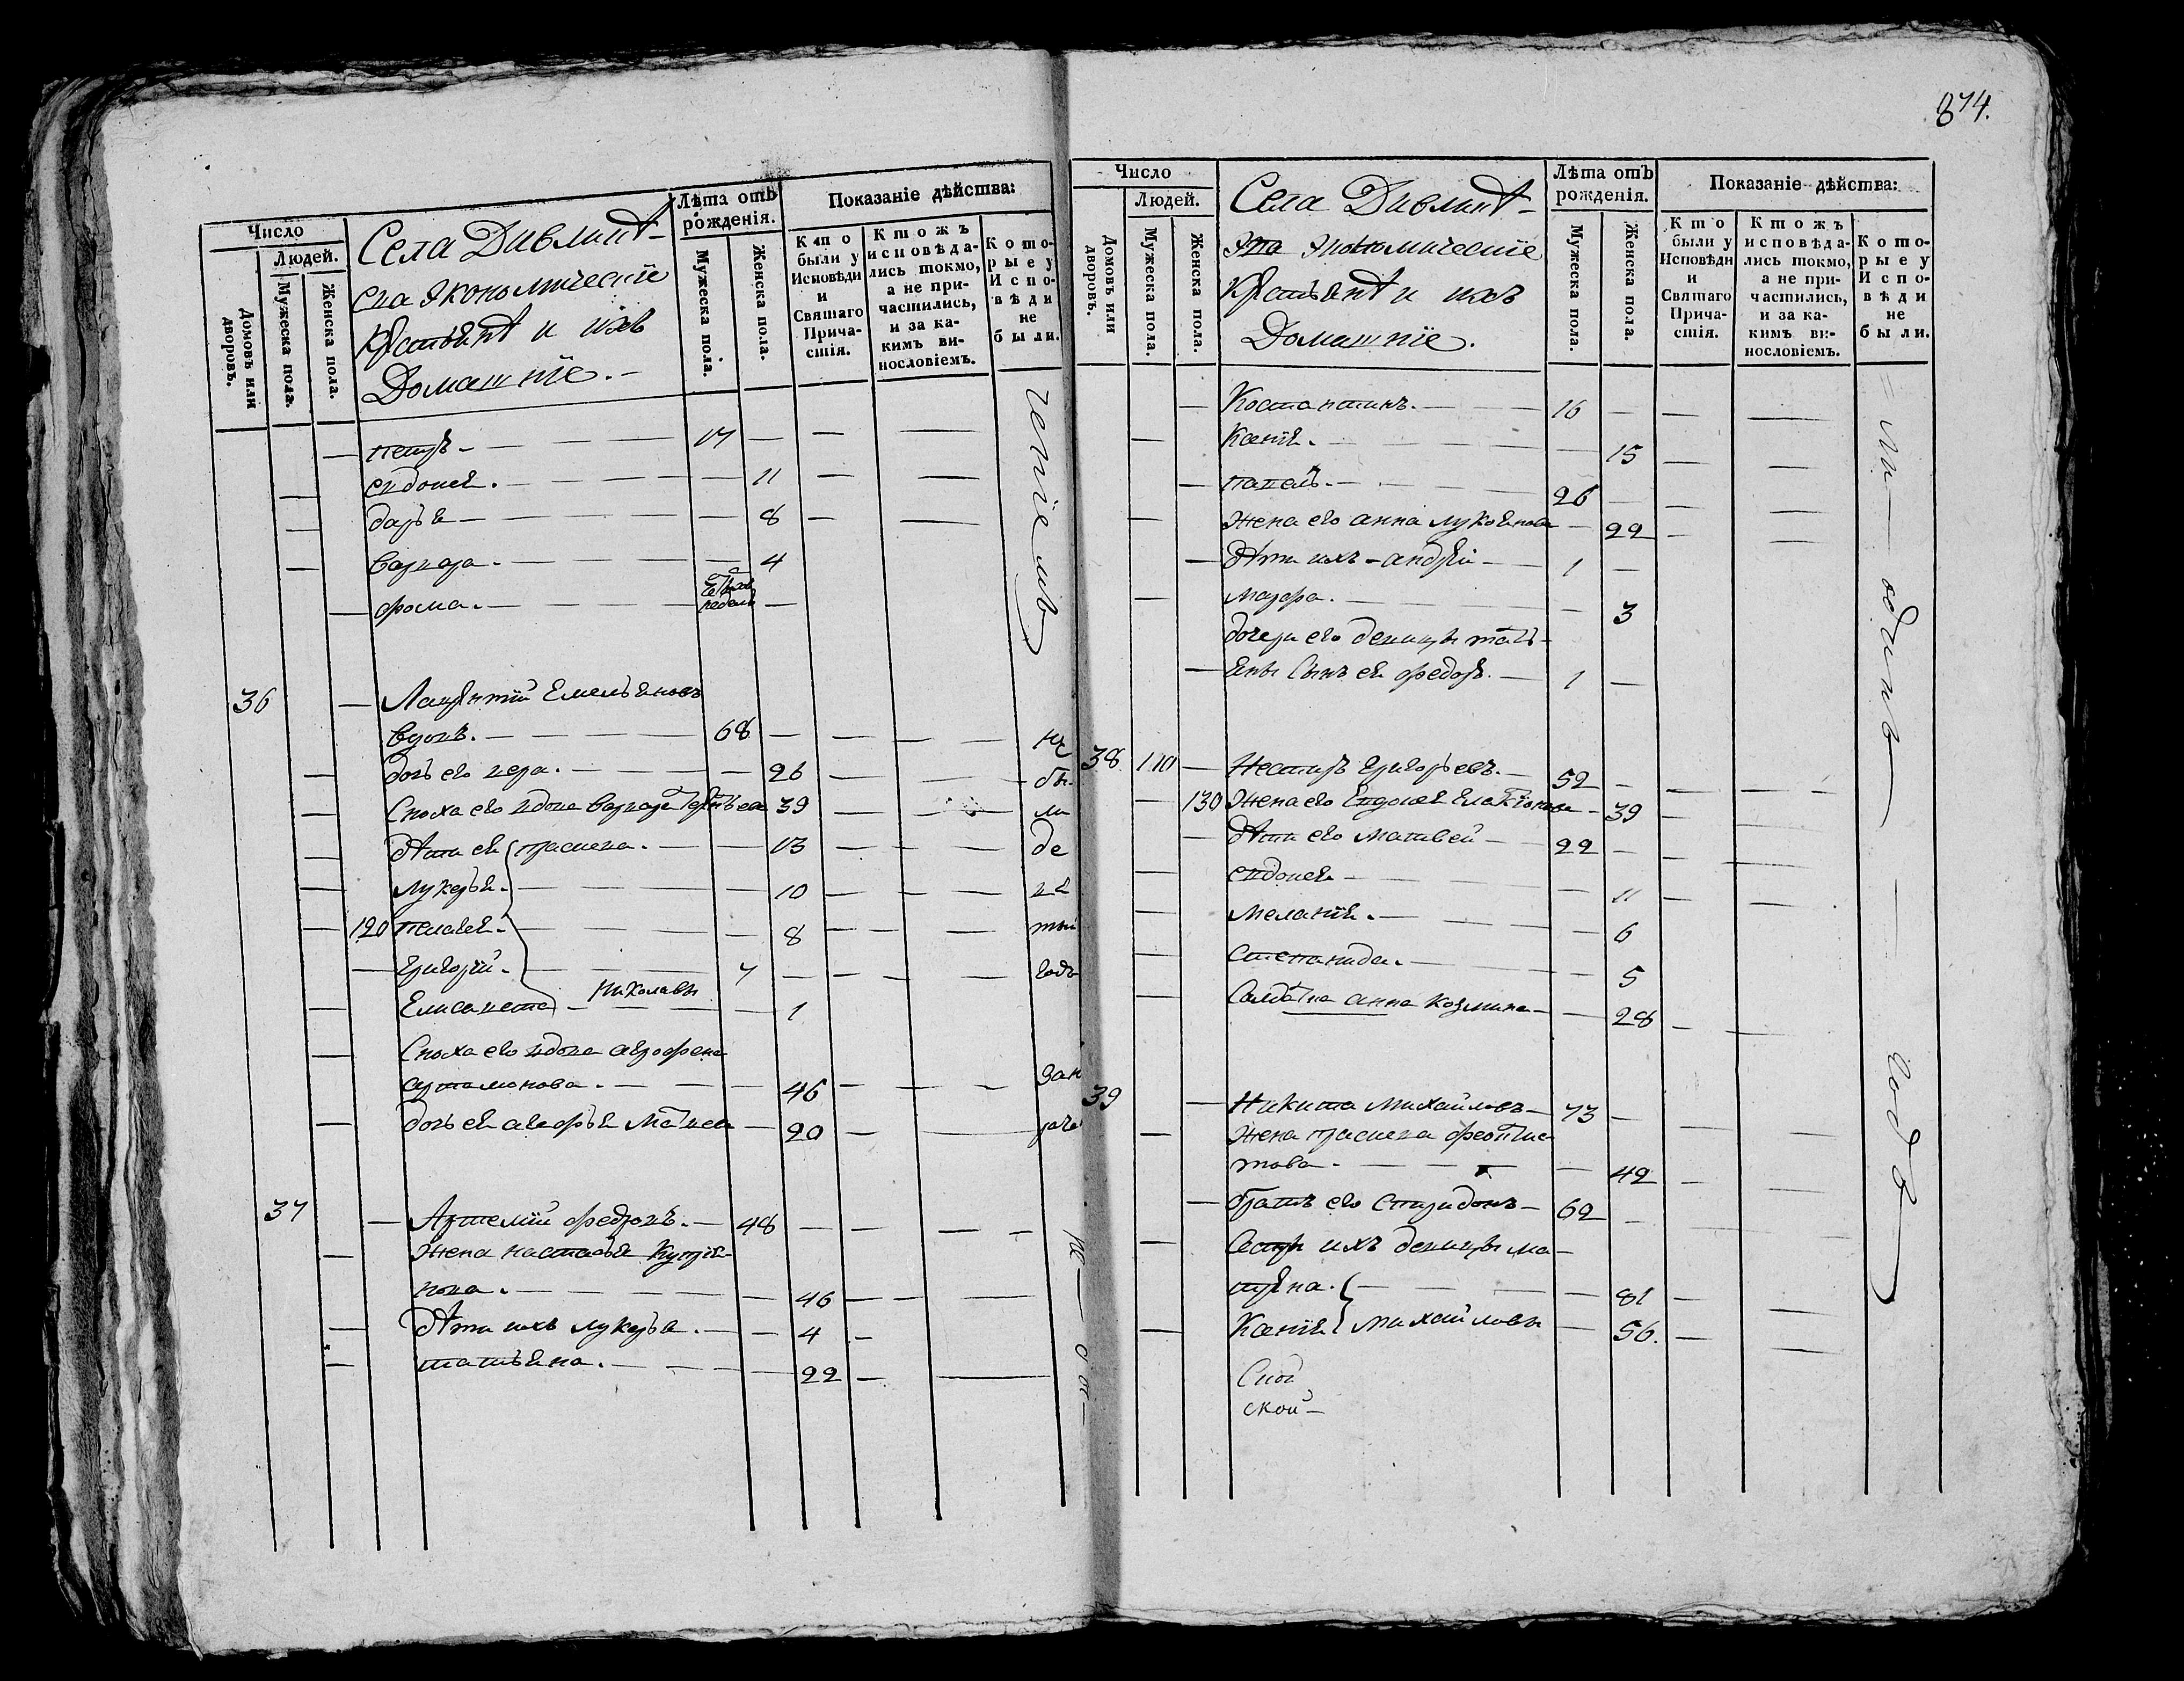 Число
Людей.
Домовъ или дворовъ.
Мужеска пола.
Женска пола.
Села Дивлинѣ-
ста Экономическіе
Крестьянѣ и ихъ
Домашніе.-
Лѣта отъ рожденія.
Мужеска пола.
Женска пола.
Показаніе дѣйства:
Кто были у Исповѣди и Святаго Причастія.
Ктожъ исповѣдались токмо, а не причастились, и за какимъ винословіемъ.
Которые у Исповѣди не были.
петръ 17
евдокея. 11
дарья 8
варвара. 4
фома. недель
36 Лаврѣнтій Емельяновъ
вдовъ. 68 не
дочь его вера. 26 бы
Сноха его вдова варвара 39 ли
дѣти ея прасковья. 13 де
лукерья. 10 вя
120 пелагея. 8 тый
григорій. 7 годъ
Елисавета Николаевы 1
Сноха его вдова агрофена
артамонова. 46
дочь ея авдотья 20
37 Артемій федоровъ. 48
жена настасья Купрія-
нова. 46
дѣти ихъ лукерья. 4
татьяна. 22
874.
Число
Людей.
Домовъ или дворовъ.
Мужеска пола.
Женска пола.
Села Дивлинѣ-
ста Экономическіе
Крестьянѣ и ихъ
Домашніе.
Лѣта отъ рожденія.
Мужеска пола.
Женска пола.
Показаніе дѣйства:
Кто были у Исповѣди и Святаго Причастія.
Ктожъ исповѣдались токмо, а не причастились, и за какимъ винословіемъ.
Которые у Исповѣди не были.
Костантинъ. 16
Ксенія. 15
павелъ. 26
жена его анна лукоянова 22
дѣти ихъ-андрѣй 1
мавра. 3
дочери его девицы тать-
яны Сынъ ея федоръ. 1
38 110 Несторъ григорьевъ. 52
130 Жена его Евдокея 39
дѣти его матвей 22
евдокея 11
меланія. 6
Степанида. 5
Салдатка анна козмина 28
39 Никита михайловъ 73
Жена прасковья феоктис-
това. 42
братъ его Спиридонъ 62
Сестры ихъ девицы ма-
трѣна. 81
Ксенія михайловы 56.
ли одинъ годъ
Сной
ской